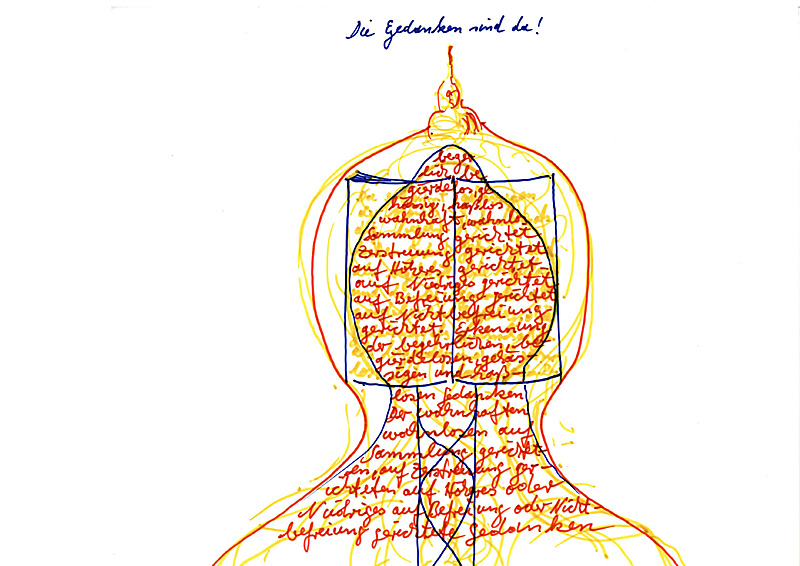 Die Gedanken sind da!
begehr
lich be
gierdelos ge
hässig, hasslos
wahnhaft, wahnlos
Sammlung gerichtet
Zerstreuung gerichtet
auf Höheres gerichtet
auf Niedriges gerichtet
auf Befreiung gerichtet
auf Nichtbefreiung
gerichtet. Erkennung
der begehrlichen, be-
gierdelosen, gehäs-
sigen und haß-
losen Gedanken
der wahnhaften
wahnlosen auf
Sammlung gerichtet-
en, auf Zerstreuung ger-
ichteten auf Höheres oder
Niedriges auf Befreiung oder Nicht-
befreiung gerichtete Gedanken